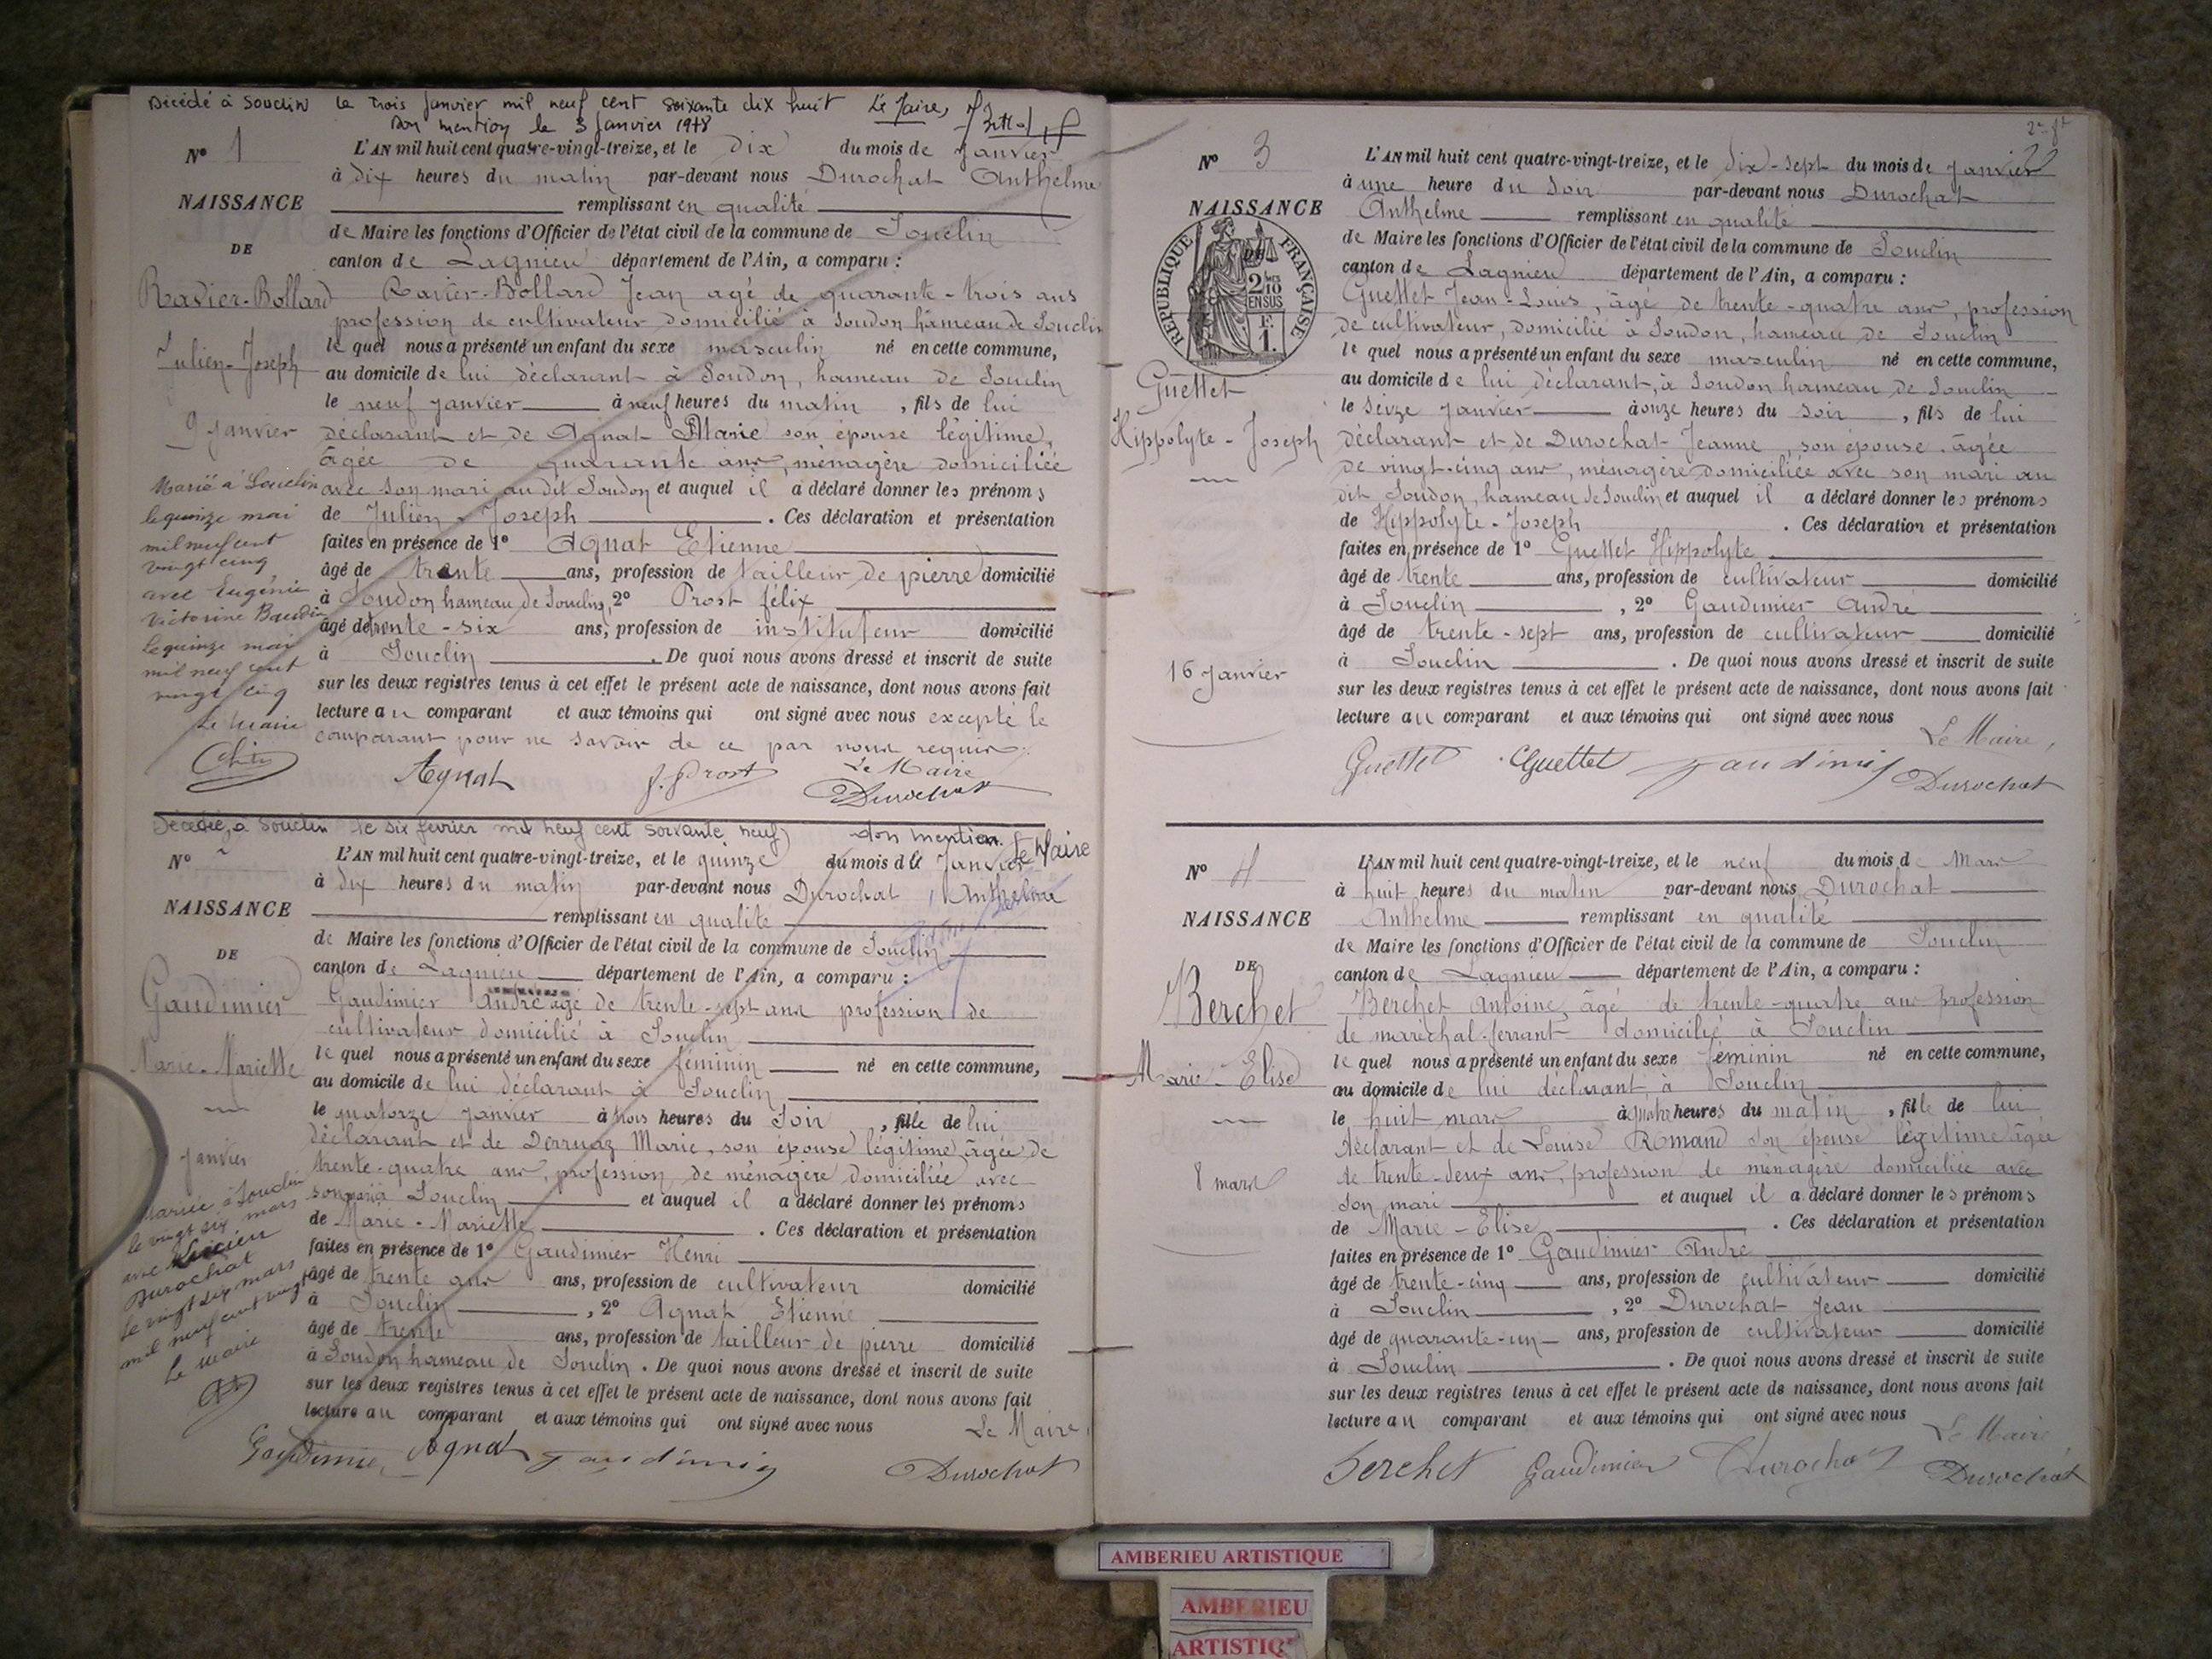 Décédé à Souclin le trois janvier mil neuf cent soixante dix huit Le Maire,
Don mention le 3 janvier 1978
N° 1
NAISSANCE
DE
Ravier-Bollard
Julien-Joseph
9 janvier
Marié à Souclin
le quinze mai
mil neuf cent
vingt cinq
avec Eugénie
Victorine Baudin
le quinze mai
mil neuf cent
vingt cinq
Le Maire
L'AN mil huit cent quatre-vingt-treize, et le dix du mois de janvier
à dix heures du matin par-devant nous Durochat Anthelme
remplissant en qualité
de Maire les fonctions d'Officier de l'état civil de la commune de Souclin
canton de Lagnieu département de l'Ain, a comparu :
Ravier-Bollard Jean agé de quarante-trois ans
profession de cultivateur domicilié à Soudon hameau de Souclin
le quel nous a présenté un enfant du sexe masculin né en cette commune,
au domicile de lui déclarant à Soudon, hameau de Souclin
le neuf janvier à neuf heures du matin, fils de lui
déclarant et de Agnat Marie son épouse légitime,
âgée de quarante ans, ménagère domiciliée
avec son mari au dit Soudon et auquel il a déclaré donner les prénoms
de Julien-Joseph. Ces déclaration et présentation
faites en présence de 1° Agnat Etienne
âgé de trente ans, profession de tailleur de pierre domicilié
à Soudon hameau de Souclin, 2° Prost félix
âgé de trente-six ans, profession de instituteur domicilié
à Souclin. De quoi nous avons dressé et inscrit de suite
sur les deux registres tenus à cet effet le présent acte de naissance, dont nous avons fait
lecture au comparant et aux témoins qui ont signé avec nous excepté le
comparant pour ne savoir de ce par nous requis.
Le Maire
Agnat J. Prost Durochat
Décédée à Souclin le six février mil neuf cent soixante neuf don mention. Le Maire
N°
NAISSANCE
DE
Gaudimier
Marie-Mariette
janvier
Mariée à Souclin
le vingt six mars
avec Lucien
Durochat
le vingt six mars
mil neuf cent vingt
Le Maire
L'AN mil huit cent quatre-vingt-treize, et le quinze du mois de Janvier
à dix heures du matin par-devant nous Durochat, Anthelme
remplissant en qualité
de Maire les fonctions d'Officier de l'état civil de la commune de Souclin
canton de Lagnieu département de l'Ain, a comparu :
Gaudimier André agé de trente-sept ans profession de
cultivateur domicilié à Souclin
le quel nous a présenté un enfant du sexe féminin né en cette commune,
au domicile de lui déclarant à Souclin
le quatorze janvier à trois heures du soir, fille de lui
déclarant et de Derruaz Marie, son épouse légitime âgée de
trente-quatre ans, profession de ménagère domiciliée avec
son mari à Souclin et auquel il a déclaré donner les prénoms
de Marie-Mariette. Ces déclaration et présentation
faites en présence de 1° Gaudimier Henri
âgé de trente ans ans, profession de cultivateur domicilié
à Souclin, 2° Agnat Etienne
âgé de trente ans, profession de tailleur de pierre domicilié
à Soudon hameau de Souclin. De quoi nous avons dressé et inscrit de suite
sur les deux registres tenus à cet effet le présent acte de naissance, dont nous avons fait
lecture au comparant et aux témoins qui ont signé avec nous
Le Maire,
Gaudimier Agnat Gaudimier Durochat
N° 3
NAISSANCE
DE
RÉPUBLIQUE FRANÇAISE
2/10 EN SUS
F. 1.
Guettet
Hippolyte-Joseph
16 Janvier
L'AN mil huit cent quatre-vingt-treize, et le dix-sept du mois de janvier
à une heure du soir par-devant nous Durochat
Anthelme remplissant en qualité
de Maire les fonctions d'Officier de l'état civil de la commune de Souclin
canton de Lagnieu département de l'Ain, a comparu :
Guettet Jean-Louis, âgé de trente-quatre ans, profession
de cultivateur, domicilié à Soudon, hameau de Souclin
le quel nous a présenté un enfant du sexe masculin né en cette commune,
au domicile de lui déclarant, à Soudon hameau de Souclin
le seize janvier à onze heures du soir, fils de lui
déclarant et de Durochat Jeanne, son épouse, âgée
de vingt-cinq ans, ménagère domiciliée avec son mari au
dit Soudon, hameau de Souclin et auquel il a déclaré donner les prénoms
de Hippolyte-Joseph. Ces déclaration et présentation
faites en présence de 1° Guettet Hippolyte
âgé de trente ans, profession de cultivateur domicilié
à Souclin, 2° Gaudimier André
âgé de trente-sept ans, profession de cultivateur domicilié
à Souclin. De quoi nous avons dressé et inscrit de suite
sur les deux registres tenus à cet effet le présent acte de naissance, dont nous avons fait
lecture au comparant et aux témoins qui ont signé avec nous
Le Maire,
Guettet Guettet Gaudimier Durochat
N° 4
NAISSANCE
DE
Berchet
Marie-Elise
8 mars
L'AN mil huit cent quatre-vingt-treize, et le neuf du mois de Mars
à huit heures du matin par-devant nous Durochat
Anthelme remplissant en qualité
de Maire les fonctions d'Officier de l'état civil de la commune de Souclin
canton de Lagnieu département de l'Ain, a comparu :
Berchet Antoine, âgé de trente-quatre ans profession
de maréchal-ferrant domicilié à Souclin
le quel nous a présenté un enfant du sexe féminin né en cette commune,
au domicile de lui déclarant, à Souclin
le huit mars à quatre heures du matin, fille de lui
déclarant et de Louise Romand son épouse légitime âgée
de trente-deux ans, profession de ménagère domiciliée avec
son mari et auquel il a déclaré donner les prénoms
de Marie-Elise. Ces déclaration et présentation
faites en présence de 1° Gaudimier André
âgé de trente-cinq ans, profession de cultivateur domicilié
à Souclin, 2° Durochat Jean
âgé de quarante-un ans, profession de cultivateur domicilié
à Souclin. De quoi nous avons dressé et inscrit de suite
sur les deux registres tenus à cet effet le présent acte de naissance, dont nous avons fait
lecture au comparant et aux témoins qui ont signé avec nous
Le Maire
Berchet Gaudimier Durochat Durochat
AMBERIEU ARTISTIQUE
AMBERIEU
ARTISTIQ